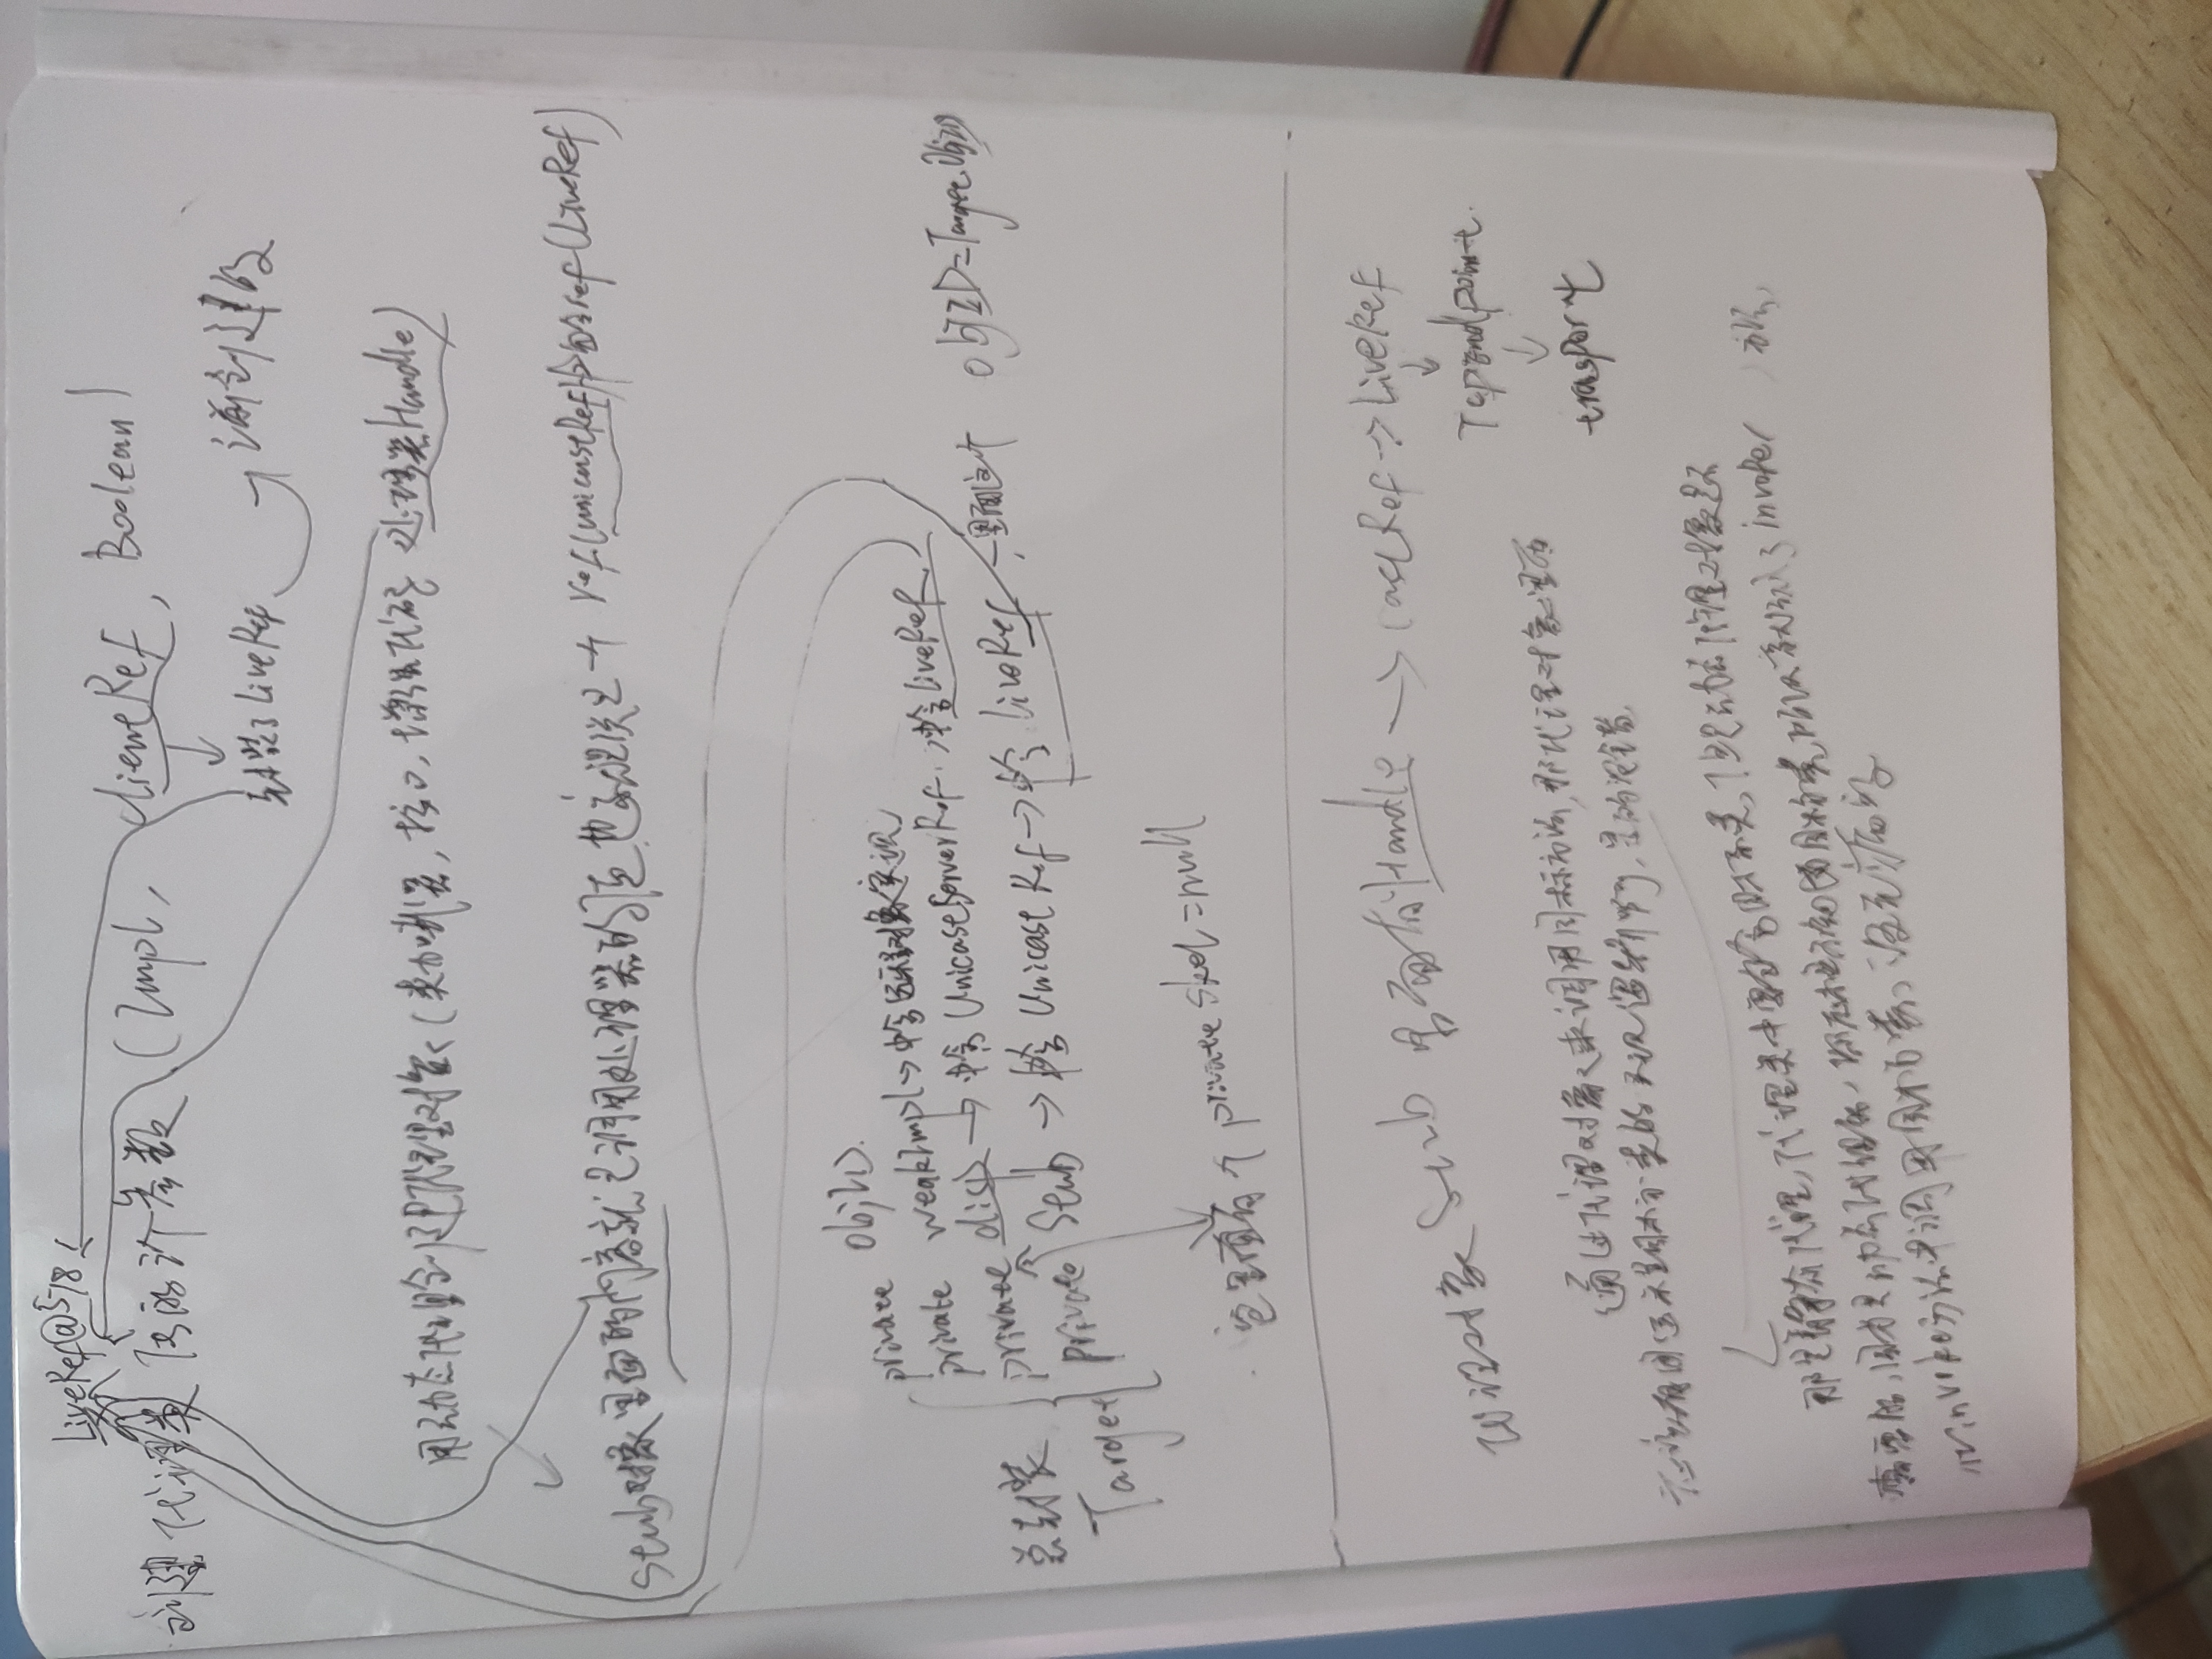 LiveRef@518
创建代理类 传的3个参数 (Impl, clientRef, Boolean)
封装了LiveRef
之前创建的
用动态代理创建代理对象 (类加载器, 接口, 增强代码 处理类Handle)
Stub对象里面的内容就是调用处理器的值 也就是 ref(unicastRef)包含ref(LiveRef)
private ObjID
private weakImpl→中含远程对象实现
private disp→中含UnicastServerRef, 中含liveRef
private Stub→中含UnicastRef→中含liveRef
里面这个 ObjID=Target.ObjID
总封装
Target
这里面有个private skel=null
代理对象Stub里面有Handle→castRef→LiveRef
TcpEndpoint
transport
通过代理对象来调用目标方法,那代理对象里面
应该有 目标类的实现逻辑啊,是的没错
那是静态代理,代理类中要包含目标类,但是动态代理对象是不
需要的,因为是动态代理的, 目标类,所以 了invoker 方法,
invoke方法中调用目标 类,没毛病